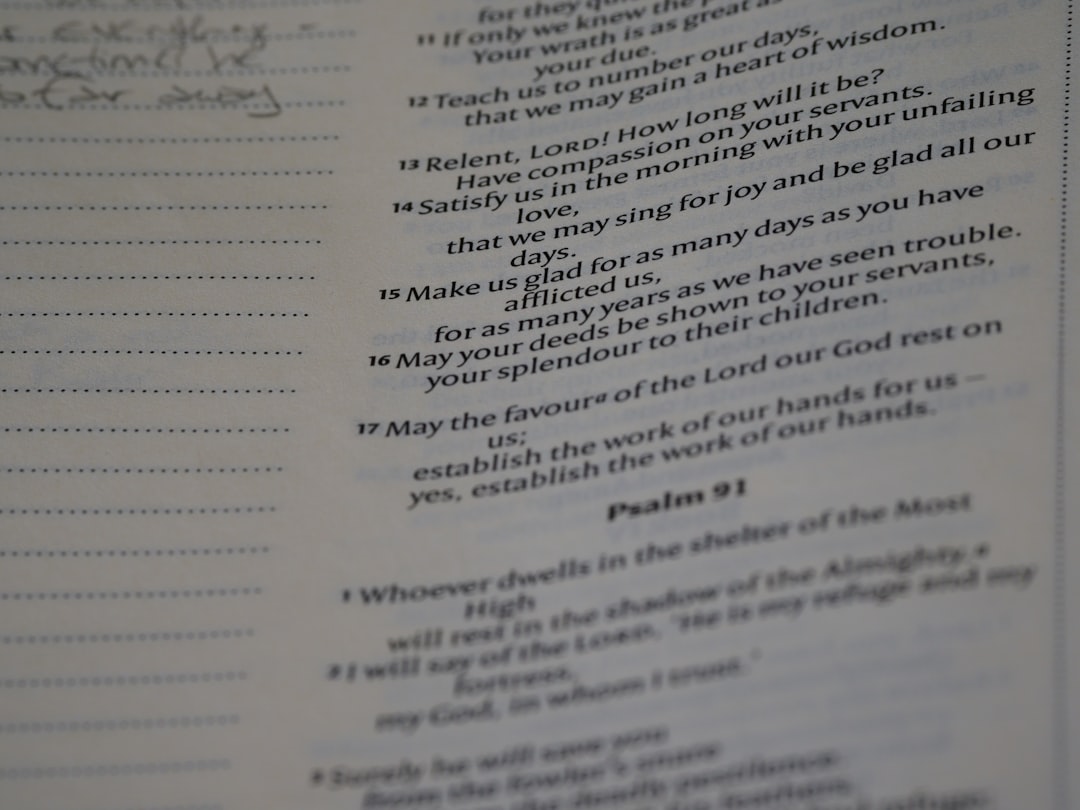 for they
11 If only we knew the
Your wrath is as great as
your due.
12 Teach us to number our days,
that we may gain a heart of wisdom.
13 Relent, LORD! How long will it be?
Have compassion on your servants.
14 Satisfy us in the morning with your unfailing
love,
that we may sing for joy and be glad all our
days.
15 Make us glad for as many days as you have
afflicted us,
for as many years as we have seen trouble.
16 May your deeds be shown to your servants,
your splendour to their children.
17 May the favour^a of the Lord our God rest on
us;
establish the work of our hands for us –
yes, establish the work of our hands.
Psalm 91
1 Whoever dwells in the shelter of the Most
High
will rest in the shadow of the Almighty.
2 I will say of the LORD, 'He is my refuge and my
fortress,
my God, in whom I trust.'
3 Surely he will save you
from the fowler's snare